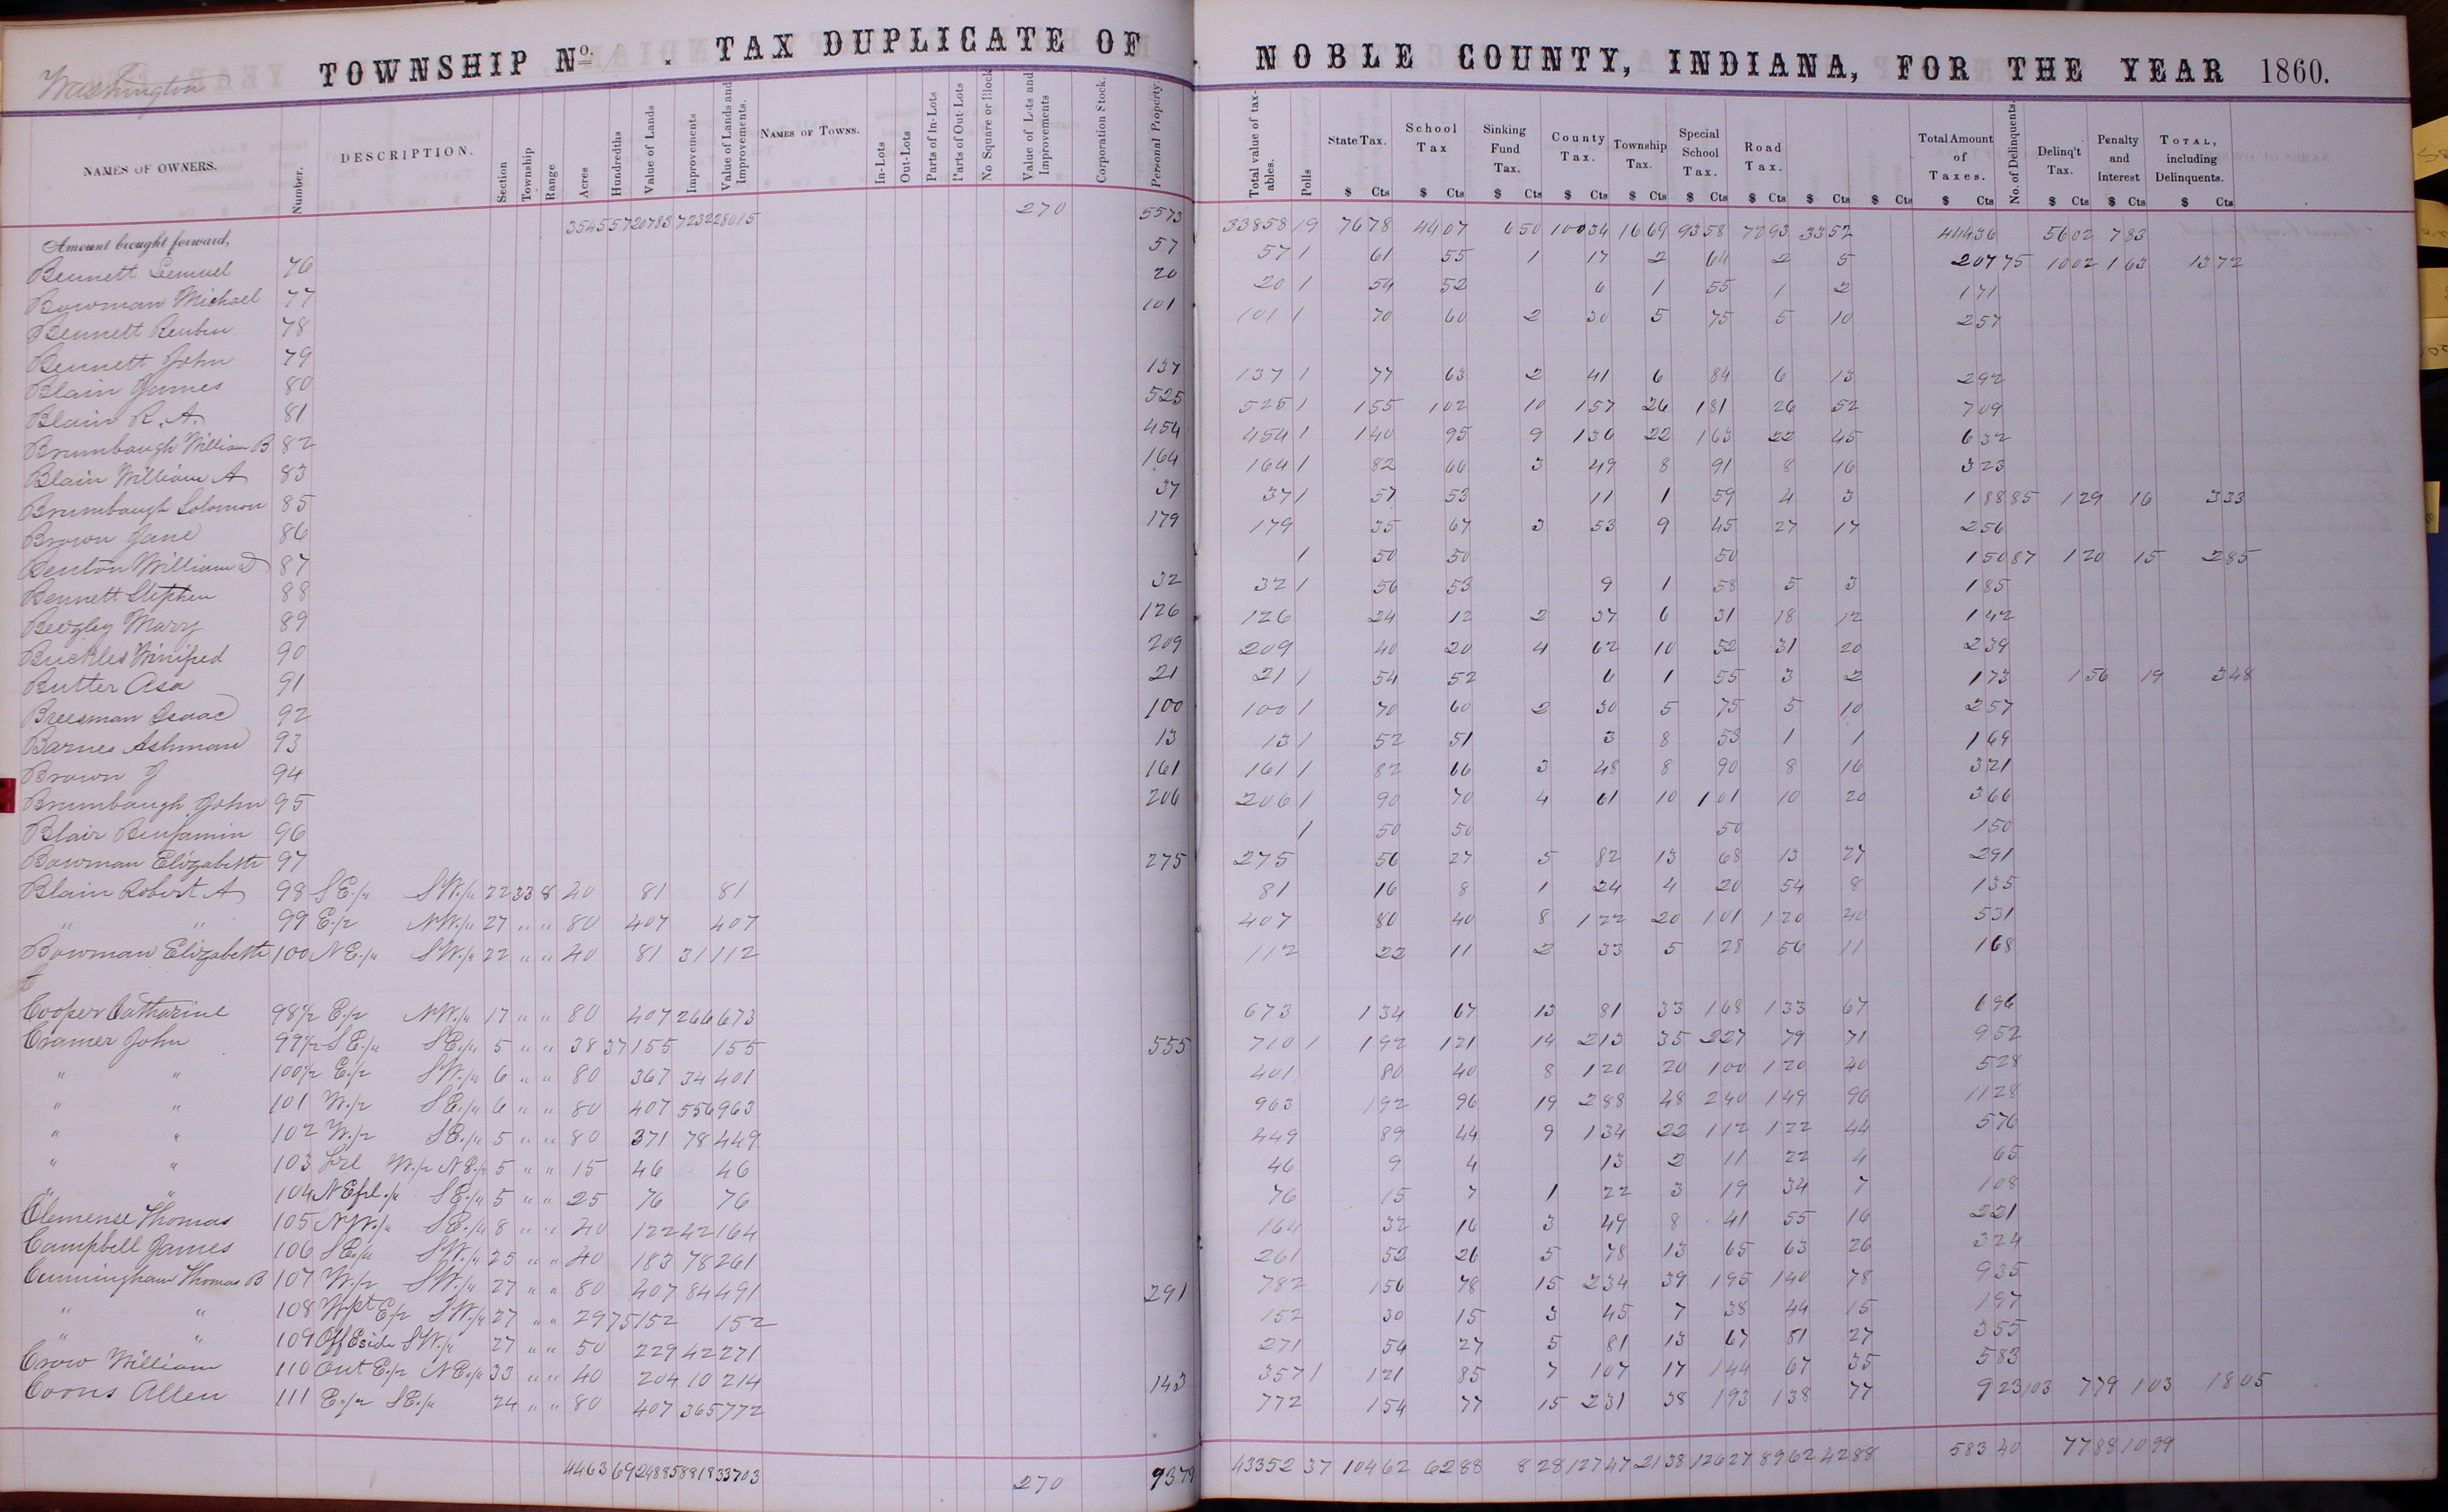 Washington TOWNSHIP No. . TAX DUPLICATE OF NOBLE COUNTY, INDIANA, FOR THE YEAR 1860.
NAMES OF OWNERS. Number. DESCRIPTION. Section Township Range Acres Hundredths Value of Lands Improvements Value of Lands and Improvements. NAMES OF TOWNS. In-Lots Out-Lots Parts of In-Lots Parts of Out-Lots No Square or Block Value of Lots and Improvements Corporation Stock. Personal Property. Total value of taxables. Polls State Tax. School Tax Sinking Fund Tax. County Tax. Township Tax. Special School Tax. Road Tax. Total Amount of Taxes. No. of Delinquents. Delinq't Tax. Penalty and Interest TOTAL, including Delinquents.
$ Cts $ Cts $ Cts $ Cts $ Cts $ Cts $ Cts $ Cts $ Cts $ Cts $ Cts $ Cts $ Cts
Amount brought forward, 3545 57 20783 7232 28015 270 5573 33858 19 7678 4407 650 10034 1669 9358 7293 3352 44436 5602 783
Bennett Lemuel 76 57 57 1 61 55 1 17 2 64 2 5 207 75 1002 163 1372
Bowman Michael 77 20 20 1 54 52 6 1 55 1 2 171
Bennett Reuben 78 101 101 1 70 60 2 30 5 75 5 10 257
Bennett John 79
Blain James 80 137 137 1 77 63 2 41 6 84 6 13 292
Blain R. A. 81 525 525 1 155 102 10 157 26 181 26 52 709
Brumbaugh William B 82 454 454 1 140 95 9 136 22 163 22 45 632
Blain William A 83 164 164 1 82 66 3 49 8 91 8 16 323
Brumbaugh Solomon 85 37 37 1 57 53 11 1 59 4 3 188 85 129 16 333
Brown Jane 86 179 179 35 67 3 53 9 45 27 17 256
Benton William D 87 1 50 50 50 150 87 120 15 285
Bennett Stephen 88 32 32 1 56 53 9 1 58 5 3 185
Beezley Mary 89 126 126 24 12 2 37 6 31 18 12 142
Buckles Winifred 90 209 209 40 20 4 62 10 52 31 20 239
Butter Asa 91 21 21 1 54 52 6 1 55 3 2 173 156 19 348
Breesman Isaac 92 100 100 1 70 60 2 30 5 75 5 10 257
Barnes Ashman 93 13 13 1 52 51 3 8 53 1 1 169
Brown J 94 161 161 1 82 66 3 48 8 90 8 16 321
Brumbaugh John 95 206 206 1 90 70 4 61 10 101 10 20 366
Blair Benjamin 96 1 50 50 50 150
Bowman Elizabeth 97 275 275 56 27 5 82 13 68 13 27 291
Blain Robert A 98 S E./4 S W./4 22 33 8 40 81 81 81 16 8 1 24 4 20 54 8 135
" " 99 E./2 N W./4 27 " " 80 407 407 407 80 40 8 122 20 101 120 40 531
Bowman Elizabeth 100 N E./4 S W./4 22 " " 40 81 31 112 112 22 11 2 33 5 28 56 11 168
C
Cooper Catharine 98 1/2 E./2 N W./4 17 " " 80 407 266 673 673 134 67 13 81 33 168 133 67 696
Cramer John 99 1/2 S E./4 S E./4 5 " " 38 37 155 155 555 710 1 192 121 14 213 35 227 79 71 952
" " 100 1/2 E./2 S W./4 6 " " 80 367 34 401 401 80 40 8 120 20 100 120 40 528
" " 101 W./2 S E./4 6 " " 80 407 556 963 963 192 96 19 288 48 240 149 96 1128
" " 102 W./2 S E./4 5 " " 80 371 78 449 449 89 44 9 134 22 112 122 44 576
" " 103 frl W./2 N E./4 5 " " 15 46 46 46 9 4 13 2 11 22 4 65
" " 104 N E frl./4 S E./4 5 " " 25 76 76 76 15 7 1 22 3 19 34 7 108
Clemense Thomas 105 N W./4 S E./4 8 " " 40 122 42 164 164 32 16 3 49 8 41 55 16 221
Campbell James 106 S E./4 S W./4 25 " " 40 183 78 261 261 52 26 5 78 13 65 63 26 324
Cunningham Thomas B 107 W./2 S W./4 27 " " 80 407 84 491 291 782 156 78 15 234 39 195 140 78 935
" " 108 W.pt E./2 S W./4 27 " " 29 75 152 152 152 30 15 3 45 7 38 44 15 197
" " 109 Off E side S W./4 27 " " 50 229 42 271 271 54 27 5 81 13 67 81 27 355
Crow William 110 Out E./2 N E./4 33 " " 40 204 10 214 143 357 1 121 85 7 107 17 144 67 35 583
Coons Allen 111 E./2 S E./4 24 " " 80 407 365 772 772 154 77 15 231 38 193 138 77 923 103 779 103 1805
4463 69 24885 8818 33703 270 9379 43352 37 10462 6288 828 12747 2138 12627 8962 4288 583 40 7788 1099